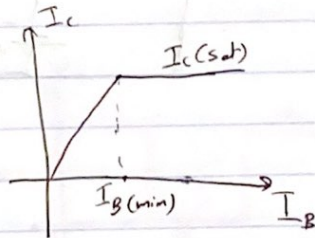 I_C
I_C(sat)
I_B(min)
I_B